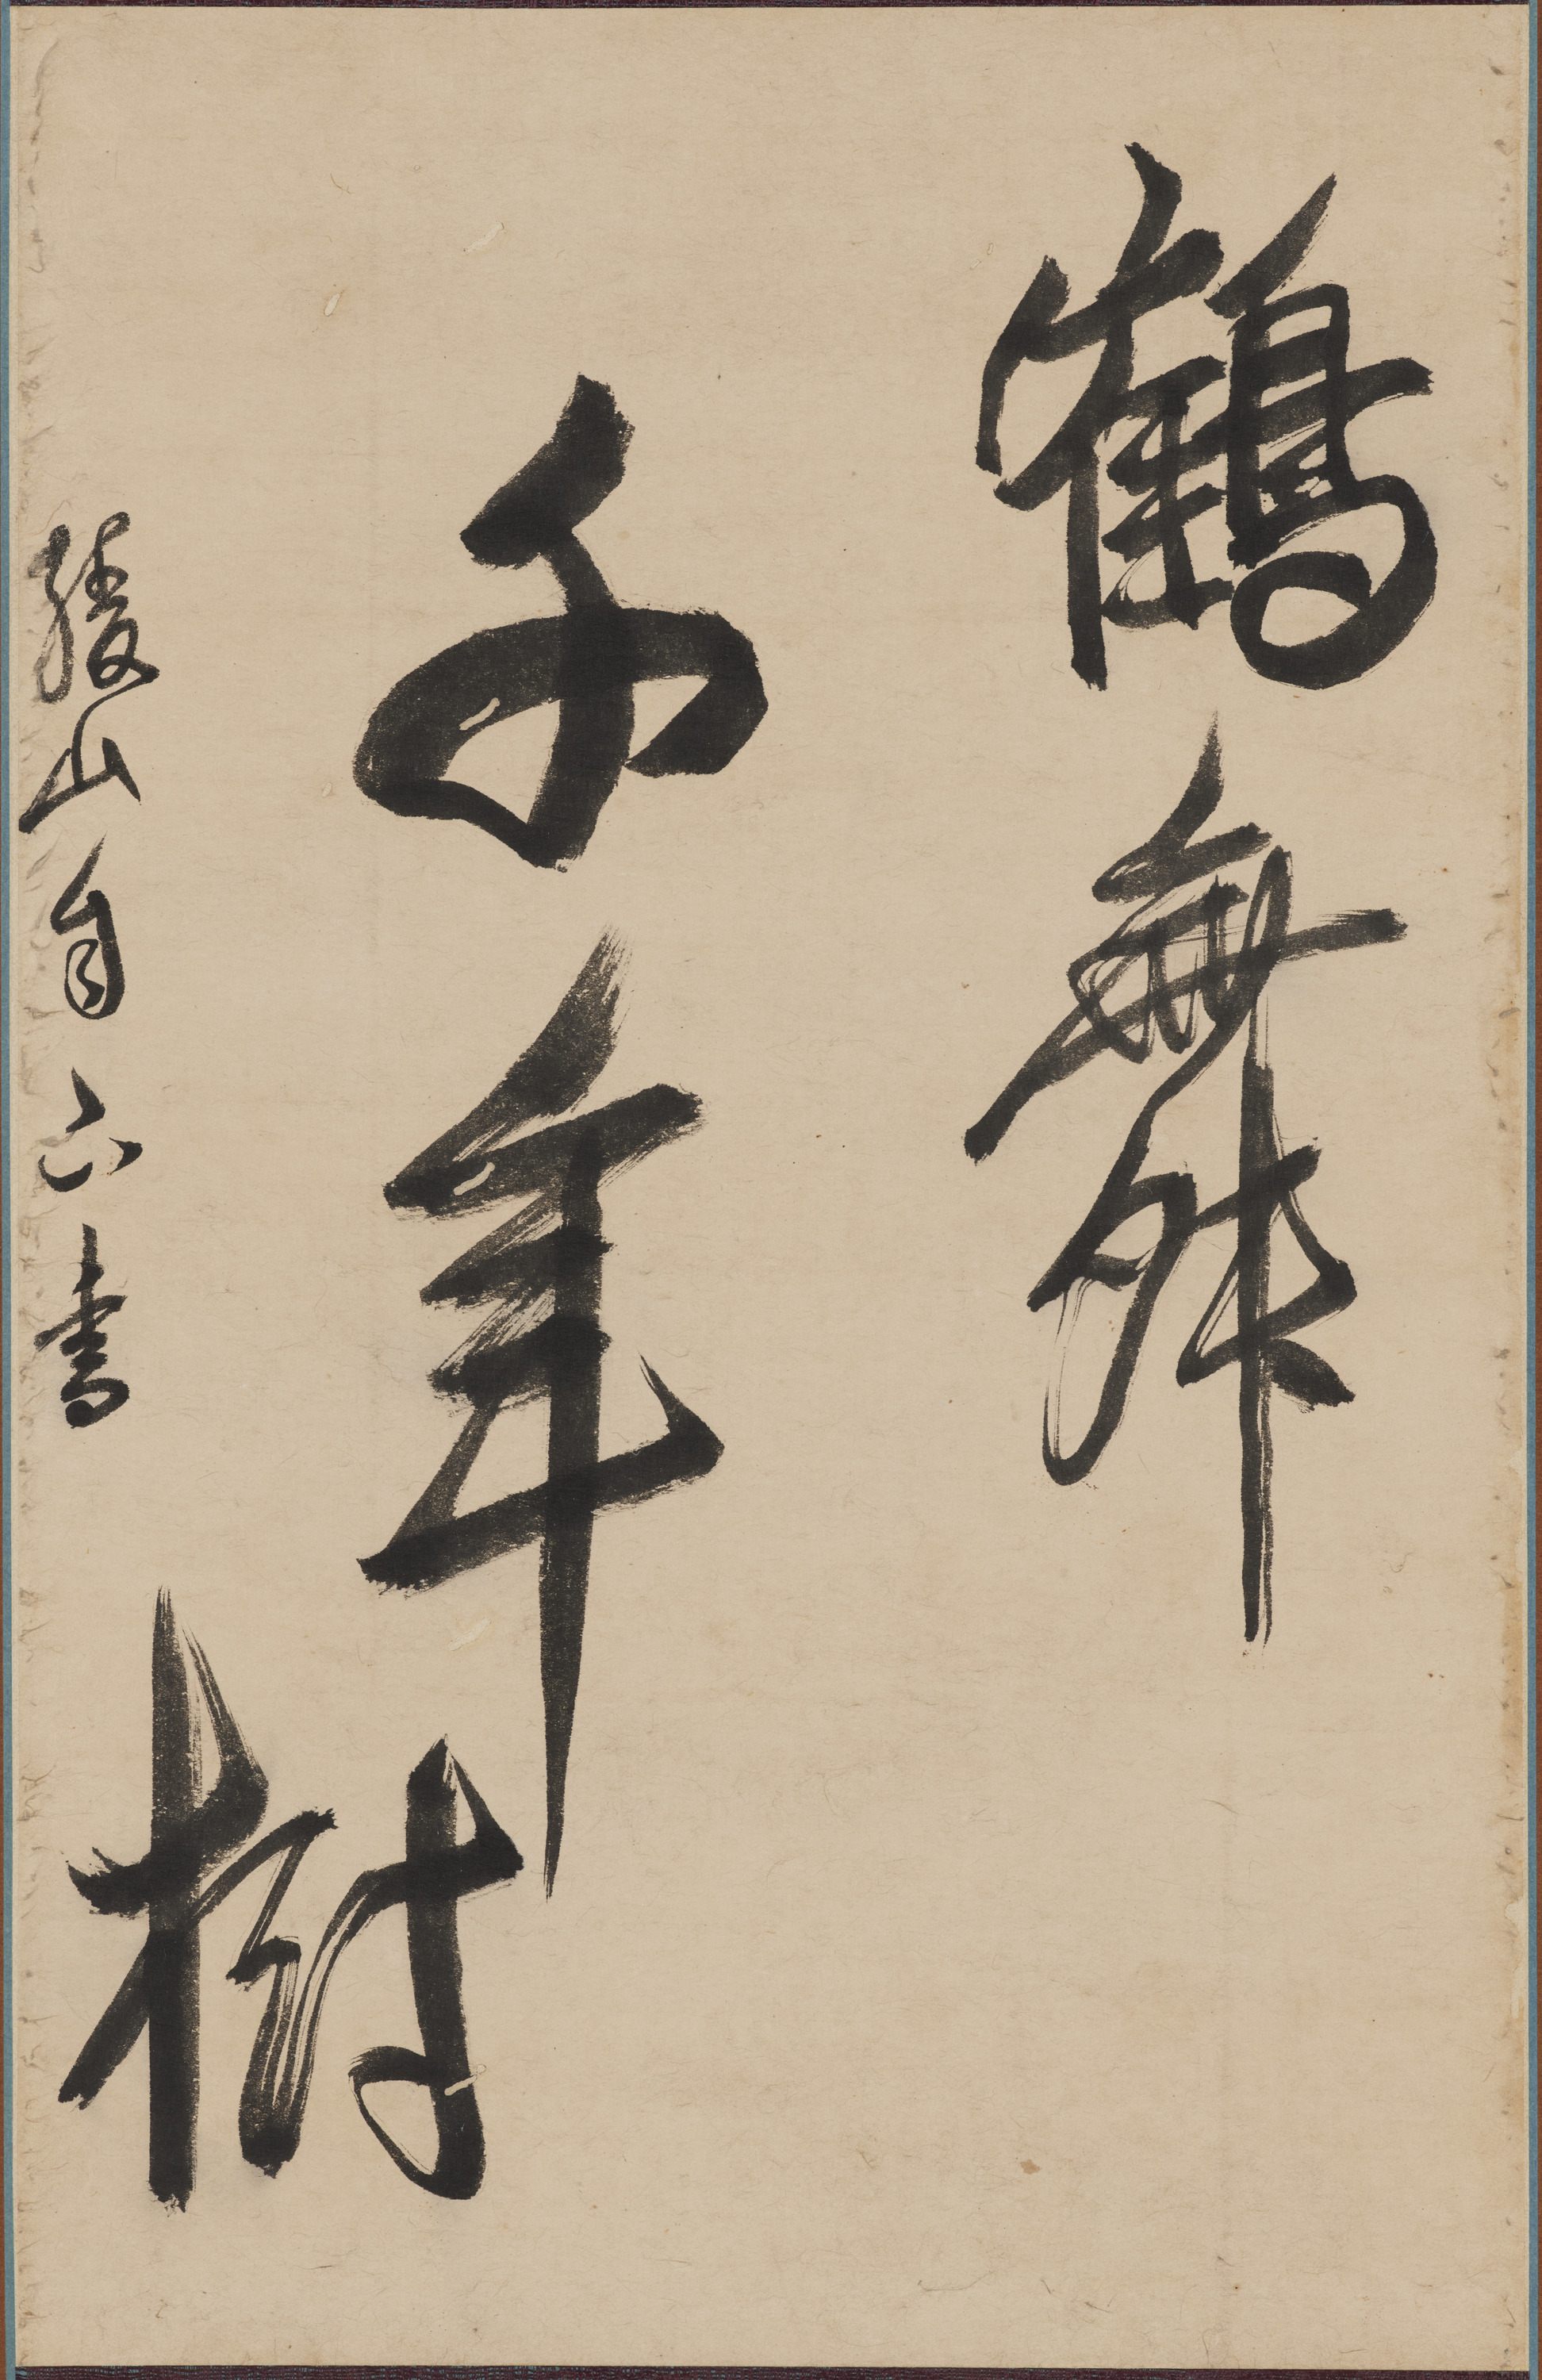 鶴舞
千年樹
陵山自卜書